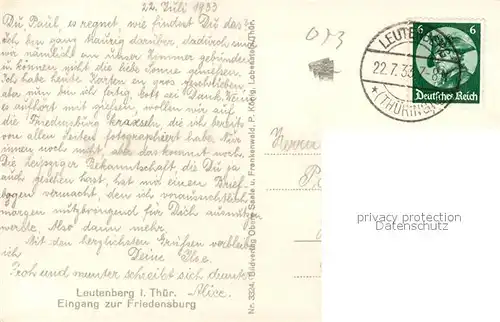 22. Juli 1933
Du, Paul, es regnet, wie findest Du das?
Ich bin ganz traurig darüber, dadurch sind
wir nämlich an unser Zimmer gebunden u
können nicht die liebe Sonne genießen.
Ich habe heute Karten en gros geschrieben,
aber nun bin ich fertig, Gott sei Dank. Wenn
es aufhört mit gießen, wollen wir auf
die Friedensburg kraxeln, die ich bereits
von allen Seiten photographiert habe. Nur
innen noch nicht, aber das kommt noch.
Die Leipziger Bekanntschaft, die Du ja
auch gesehen hast, hat mir einen Brief-
bogen vermacht, den ich voraussichtlich
morgen nutzbringend für Dich ausnützen
werde. Also dann mehr.
Mit den herzlichsten Grüßen verbleibe
ich Deine Ilse.
Froh und munter schreibt sich damit
Alice.
Leutenberg i. Thür.
Eingang zur Friedensburg
Nr. 3324. Bildverlag Obere Saale u. Frankenwald, P. König, Lobenstein/Thür.
013
LEUTENBERG
22.7.33
* (THÜRING.)
6 6
Deutsches Reich
Herrn
privacy protection
Datenschutz